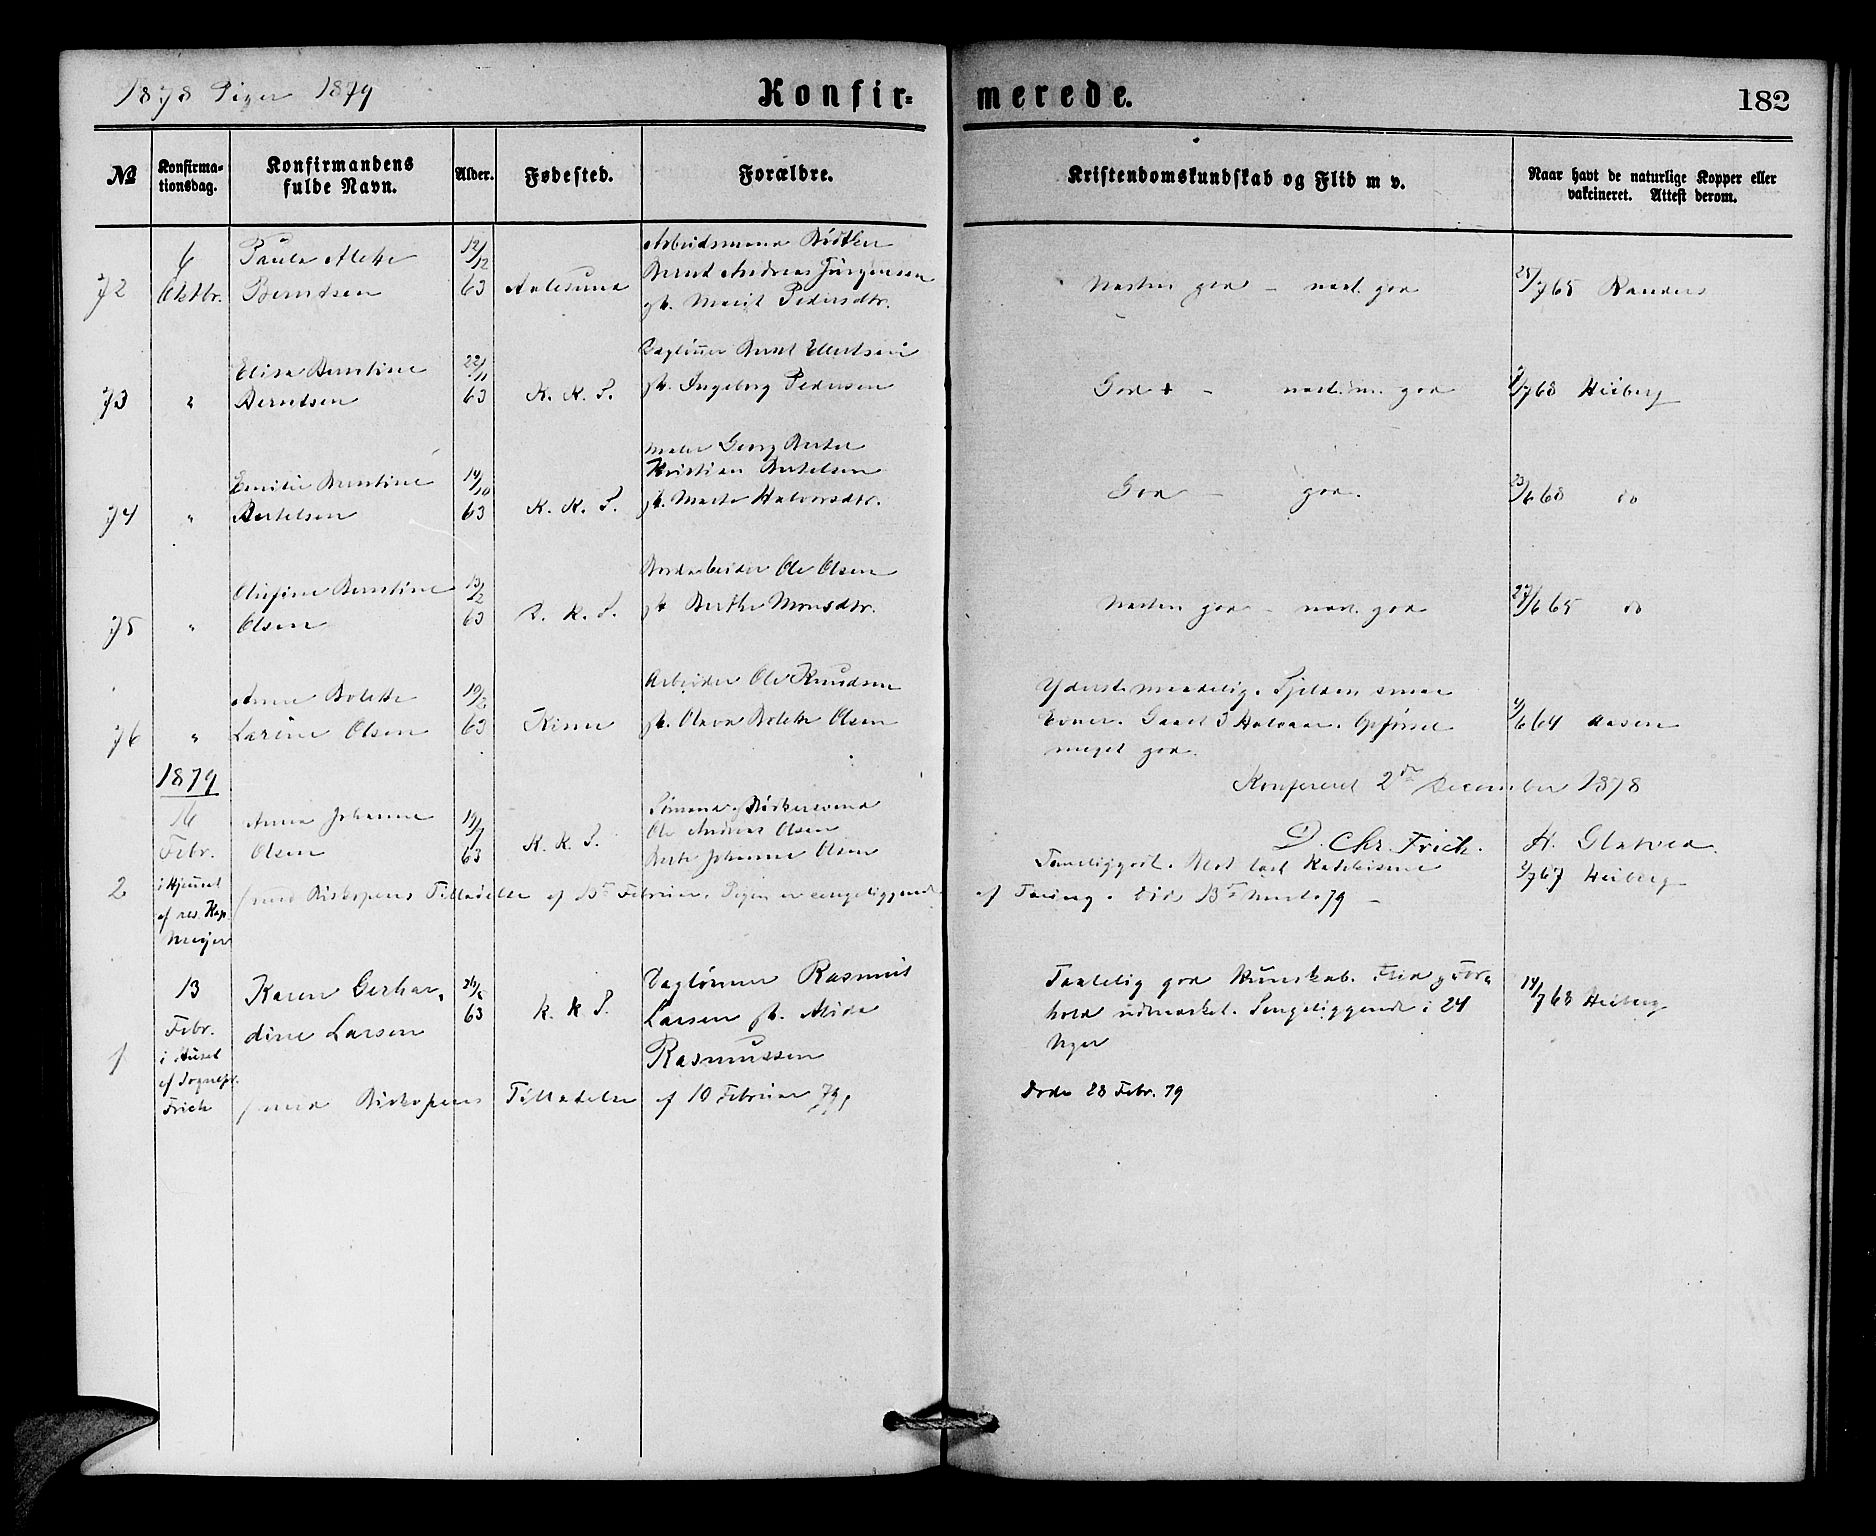 1878 Piger 1879
Konfir=
merede.
182
№
Konfirma-
tionsdag.
Konfirmandens
fulde Navn.
Alder.
Fødested.
Forældre.
Kristendomskundskab og Flid m v.
Naar havt de naturlige Kopper eller
vakcineret. Attest derom.
72
6
Oktbr.
Paula Alette
Berndsen
12/12
63
Aalesund
Arbeidsmand Bødtker
Bernt Andreas Jørgensen
gb. Marit Pedersdtr.
Næsten god – næst. god
25/7 65 Randers
73
"
Elisa Berntine
Berndsen
22/11
63
K. K. S.
Dagløner Bernt Ellertsen
gb. Ingeborg Pedersen
God + – næst. m. god
/7 68 Heiberg
74
"
Emilie Berntine
Bertelsen
14/10
63
K. K. S.
Maler Georg Bertel
Kristian Bertelsen
gb. Marte Halvorsdtr.
God – god.
23/6 68 do
75
"
Olufine Berntine
Olsen
13/2
63
K. K. S.
Bordarbeider Ole Olsen
gb. Berthe Monsdtr.
Næsten god – næst. god
27/6 65 do
76
"
Anne Bolette
Larine Olsen
63
Kinn
Arbeider Ole Knudsen
gb. Olava Bolette Olsen
Yderst maadelig. Sjelden smaa
Evner. Gaaet 3 Halvaar. Opførsel
meget god.
/6 64 Aasen
Konfereret 2den December 1878
D. Chr. Frich. H. Glatved.
1879
2
16
Febr.
i Hjemmet
af res. Kap.
Meijer
Anna Johanne
Olsen
63
K. K. S.
Sømand, Bødkersvend
Ole Andreas Olsen
Berte Johanne Olsen
Temmeliggod. Blot læst Katekisme
/7 67 Heiberg
med Biskopens Tilladelse af 13de Februar. Pigen er sengeliggende
af Tæring. Død 13de Marts 79 –
1
13
Febr.
i Huset
af Sognepr.
Frich
Karen Gerhar-
dine Larsen
63
K. K. S.
Dagløner Rasmus
Larsen gb. Alida
Rasmussen
Taalelig god Kunskab. Flid og For-
hold udmærket. Sengeliggende i 24
Uger
14/7 68 Heiberg
med Biskopens Tilladelse af 10 Februar 79,
Døde 28 Febr. 79